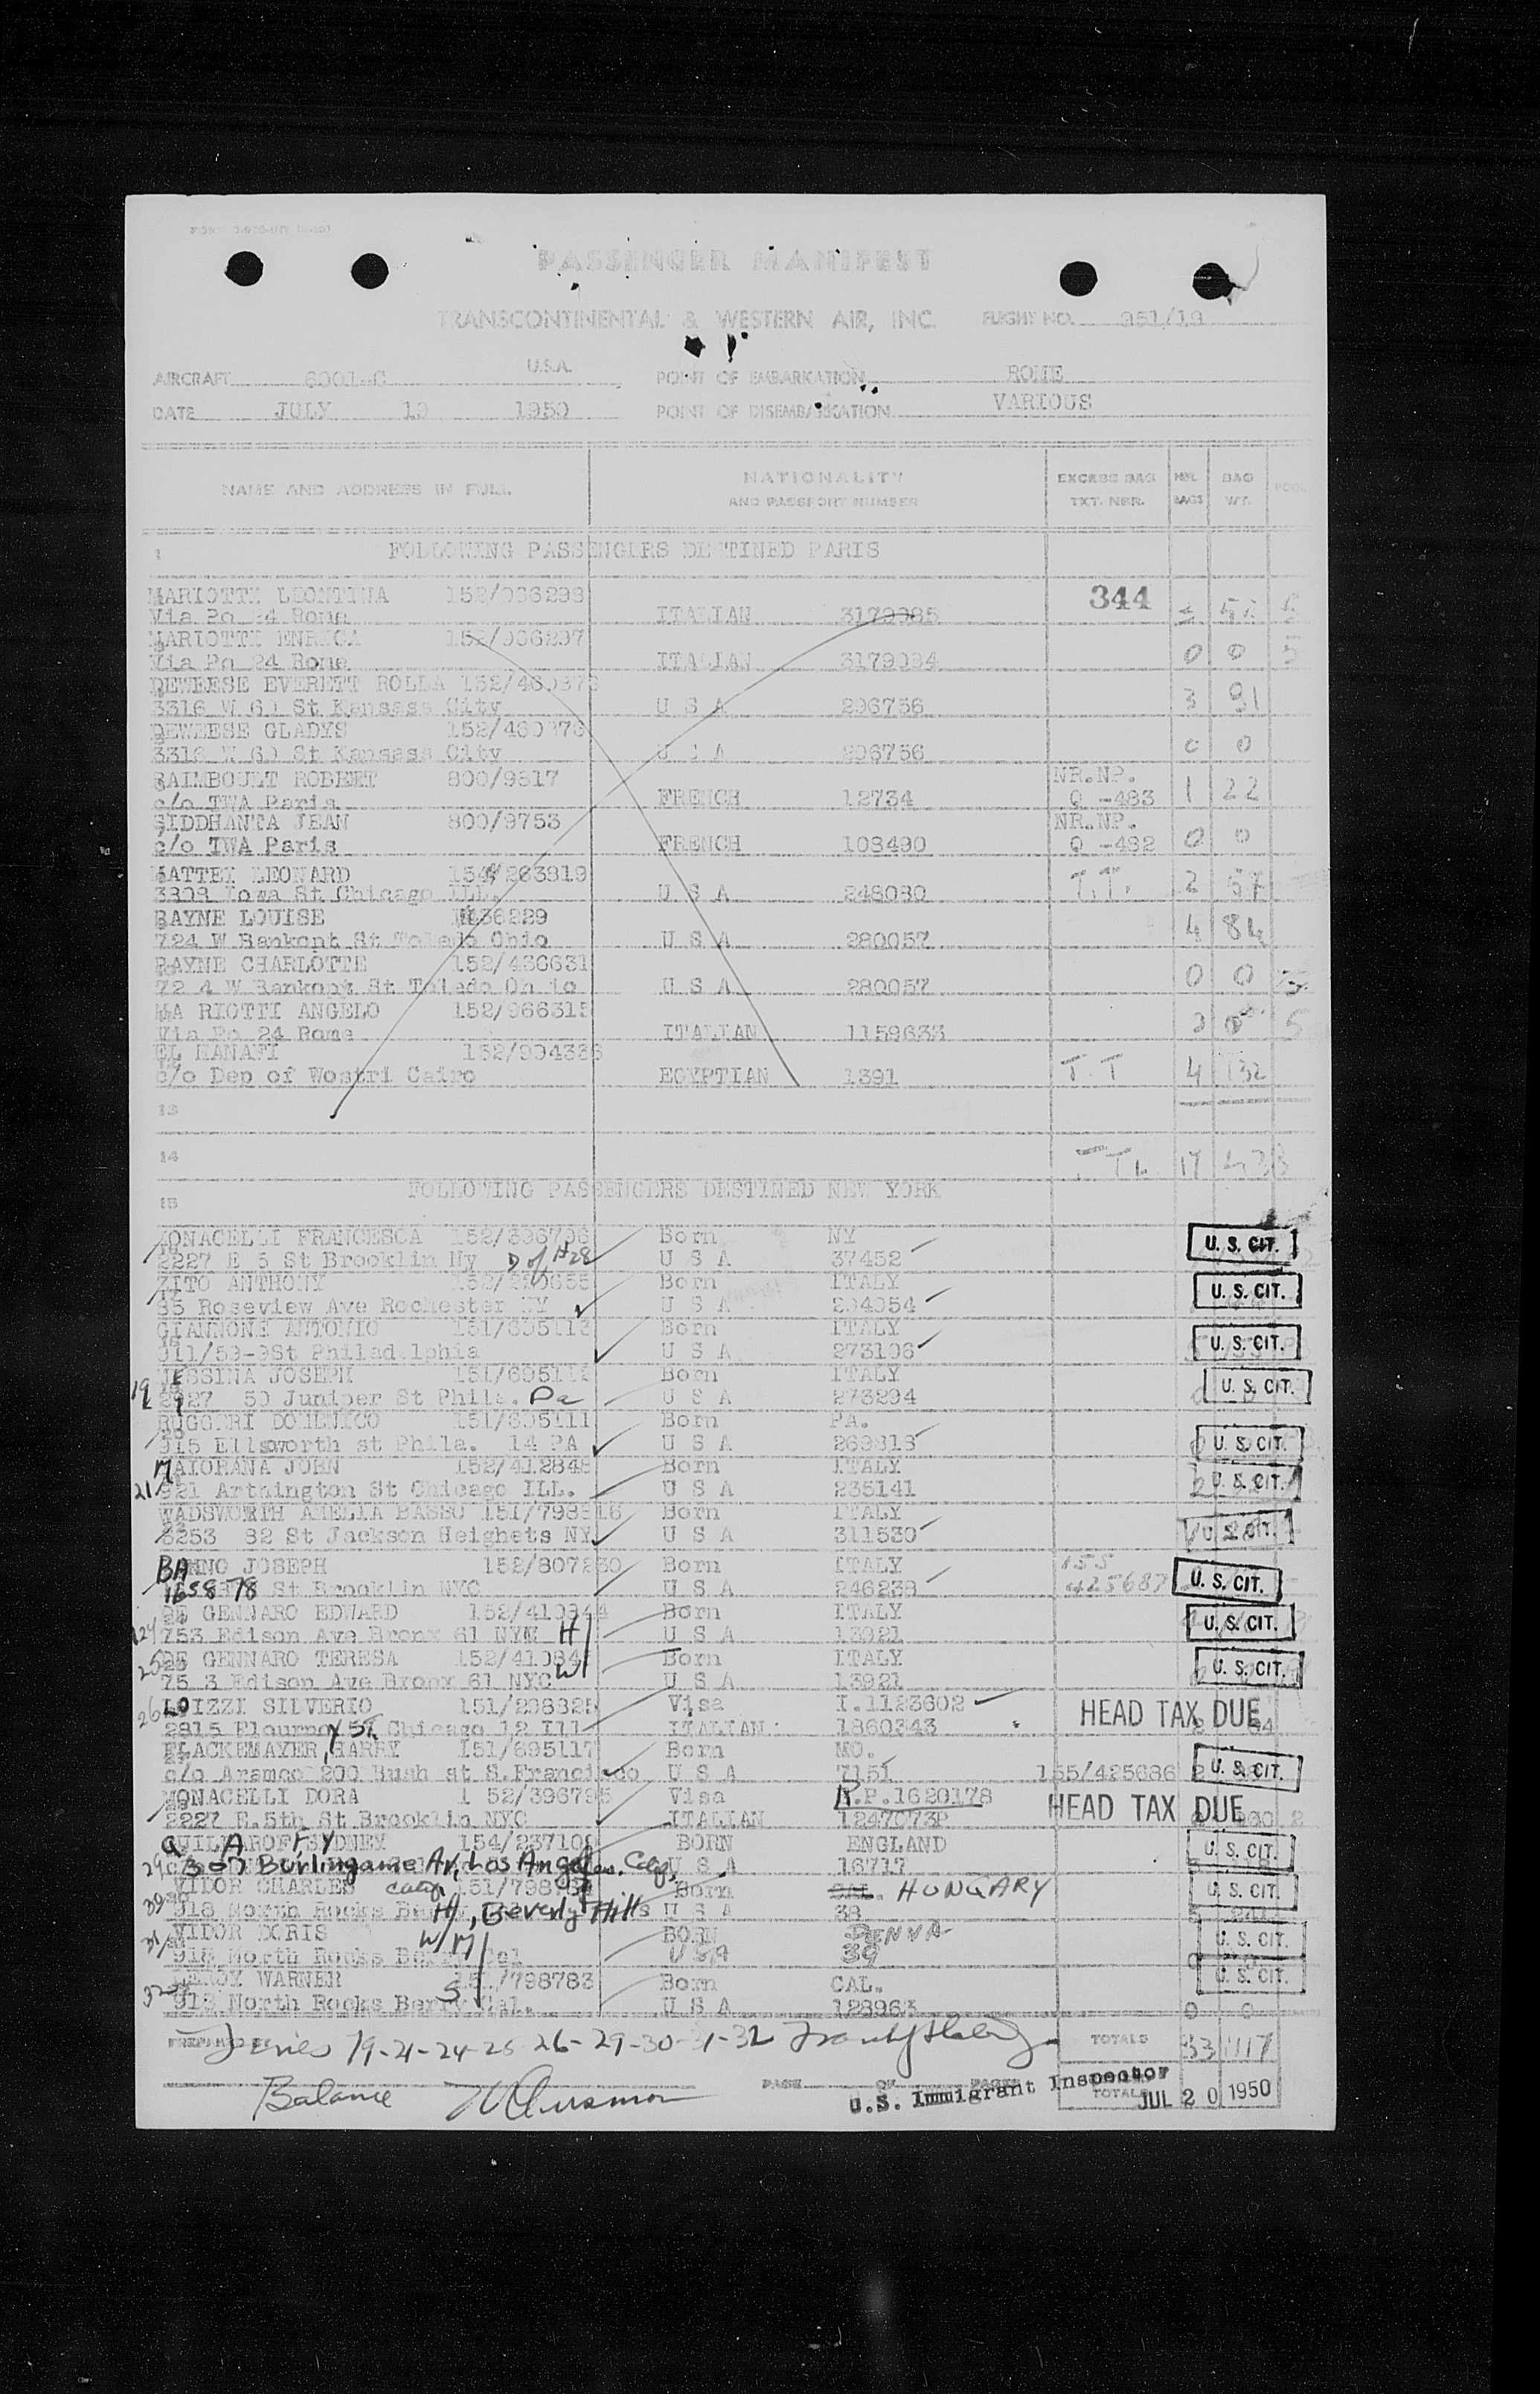 PASSENGER MANIFEST
TRANSCONTINENTAL & WESTERN AIR, INC. FLIGHT NO. 951/19
AIRCRAFT 6001-C U.S.A. POINT OF EMBARKATION ROME
DATE JULY 19 1950 POINT OF DISEMBARKATION VARIOUS
NAME AND ADDRESS IN FULL NATIONALITY AND PASSPORT NUMBER EXCESS BAG TKT. NBR. NBR. BAGS BAG WT. POOL
1 FOLLOWING PASSENGERS DESTINED PARIS
MARIOTTI LEONTINA 152/966298 344
Via Po 24 Rome ITALIAN 3179985
MARIOTTI ENRICA 152/966297
Via Po 24 Rome ITALIAN 3179984 0 0 5
DEWEESE EVERETT ROLLA 152/460375
3316 W 60 St Kansass City U S A 296756 3 91
DEWEESE GLADYS 152/460376
3316 W 60 St Kansass City U S A 296756 0 0
RAIMBOULT ROBERT 800/9817 NR.NP.
c/o TWA Paris FRENCH 12734 Q -483 1 22
SIDDHANTA JEAN 800/9753 NR.NP.
c/o TWA Paris FRENCH 108490 Q -482 0 0
MATTEI LEONARD 154/263819
3808 Iowa St Chicago ILL. U S A 248080 T.T. 2 57
RAYNE LOUISE 436229
724 W Bankont St Toledo Ohio U S A 280057 4 84
RAYNE CHARLOTTE 152/436631
72 4 W Bankont St Toledo Oh io U S A 280057 0 0
MA RIOTTI ANGELO 152/966315
Via Po 24 Rome ITALIAN 1159633 5
EL HANAFI 152/994386
c/o Dep of Wostri Cairo EGYPTIAN 1391 T.T 4 132
13
14 T TL 17 438
15 FOLLOWING PASSENGERS DESTINED NEW YORK
MONACELLI FRANCESCA 152/396796 Born NY
2227 E 5 St Brooklin Ny D of #28 U S A 37452 U. S. CIT.
ZITO ANTHONY Born ITALY
85 Roseview Ave Rochester NY U S A 204054 U. S. CIT.
GIANNONE ANTONIO 151/695113 Born ITALY
911/59-9St Philadelphia U S A 273106 U. S. CIT.
MESSINA JOSEPH 151/695112 Born ITALY
19 2927 50 Juniper St Phila. Pa U S A 273294 U. S. CIT.
RUGGERI DOMENICO 151/695111 Born PA.
915 Ellsworth st Phila. 14 PA U S A 269818 U. S. CIT.
MAIORANA JOHN 152/412848 Born ITALY
21 921 Arthington St Chicago ILL. U S A 235141 U. S. CIT.
WADSWORTH AMELIA BASSO 151/798816 Born ITALY
3253 82 St Jackson Heighets NY U S A 311530 U. S. CIT.
BANNO JOSEPH 152/807230 Born ITALY 155
1658 78 St Brooklin NYC U S A 246238 425687 U. S. CIT.
DE GENNARO EDWARD 152/410844 Born ITALY
24 753 Edison Ave Bronx 61 NYC H U S A 13921 U. S. CIT.
25 DE GENNARO TERESA 152/41084 Born ITALY
75 3 Edison Ave Bronx 61 NYC W U S A 13921 U. S. CIT.
26 LOIZZI SILVERIO 151/298325 Visa I.1123602 HEAD TAX DUE
2815 Flournoy St. Chicago 12 Ill ITALIAN 1860343
FLACKEMAYER, HARRY 151/695117 Born MO.
c/o Aramco 200 Bush st S.Francisco U S A 7151 155/425686 U. S. CIT.
MONACELLI DORA 1 52/396795 Visa R.P.1620178
2227 E.5th St Brooklin NYC ITALIAN 1247073P HEAD TAX DUE
GUILAROFF SYDNEY 154/237109 BORN ENGLAND
29 307 Burlingame Av, Los Angeles. Calif. U S A 16717 U. S. CIT.
30 VIDOR CHARLES Born CAL. HUNGARY
918 North Rocks H, Beverly Hills U S A 38 U. S. CIT.
31 VIDOR DORIS W BORN PENNA
918 North Rocks Berry Cal USA 39 U. S. CIT.
32 LEROY WARNER S 151/798783 Born CAL.
918 North Rocks Berry Cal. U S A 128963 U. S. CIT. 0 0
PREPARED BY 19-21-24-25 26-29-30-31-32 TOTALS 33 1117
Balance PAGE OF PAGES
U.S. Immigrant Inspector TOTALS JUL 20 1950